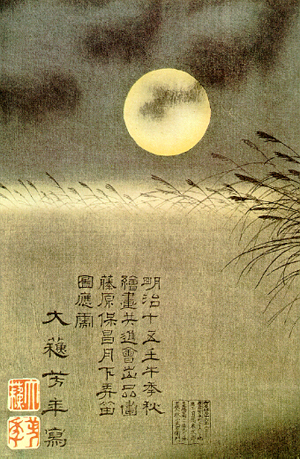 明治十五壬午季秋
繪畫共進會出品畫
藤原保昌月下弄笛
圖應需
大蘇芳年寫